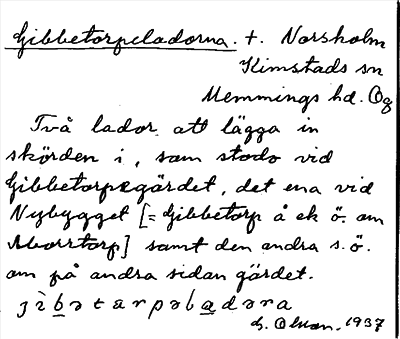 Gibbetorpsladorna. t. Norsholm
Kimstads sn
Memmings hd. Ög
Två lador att lägga in
skörden i, som stodo vid
Gibbetorpsgärdet, det ena vid
Nybygget [= Gibbetorp å ek ö. om
Aborrtorp] samt den andra s.ö.
om på andra sidan gärdet.
1937